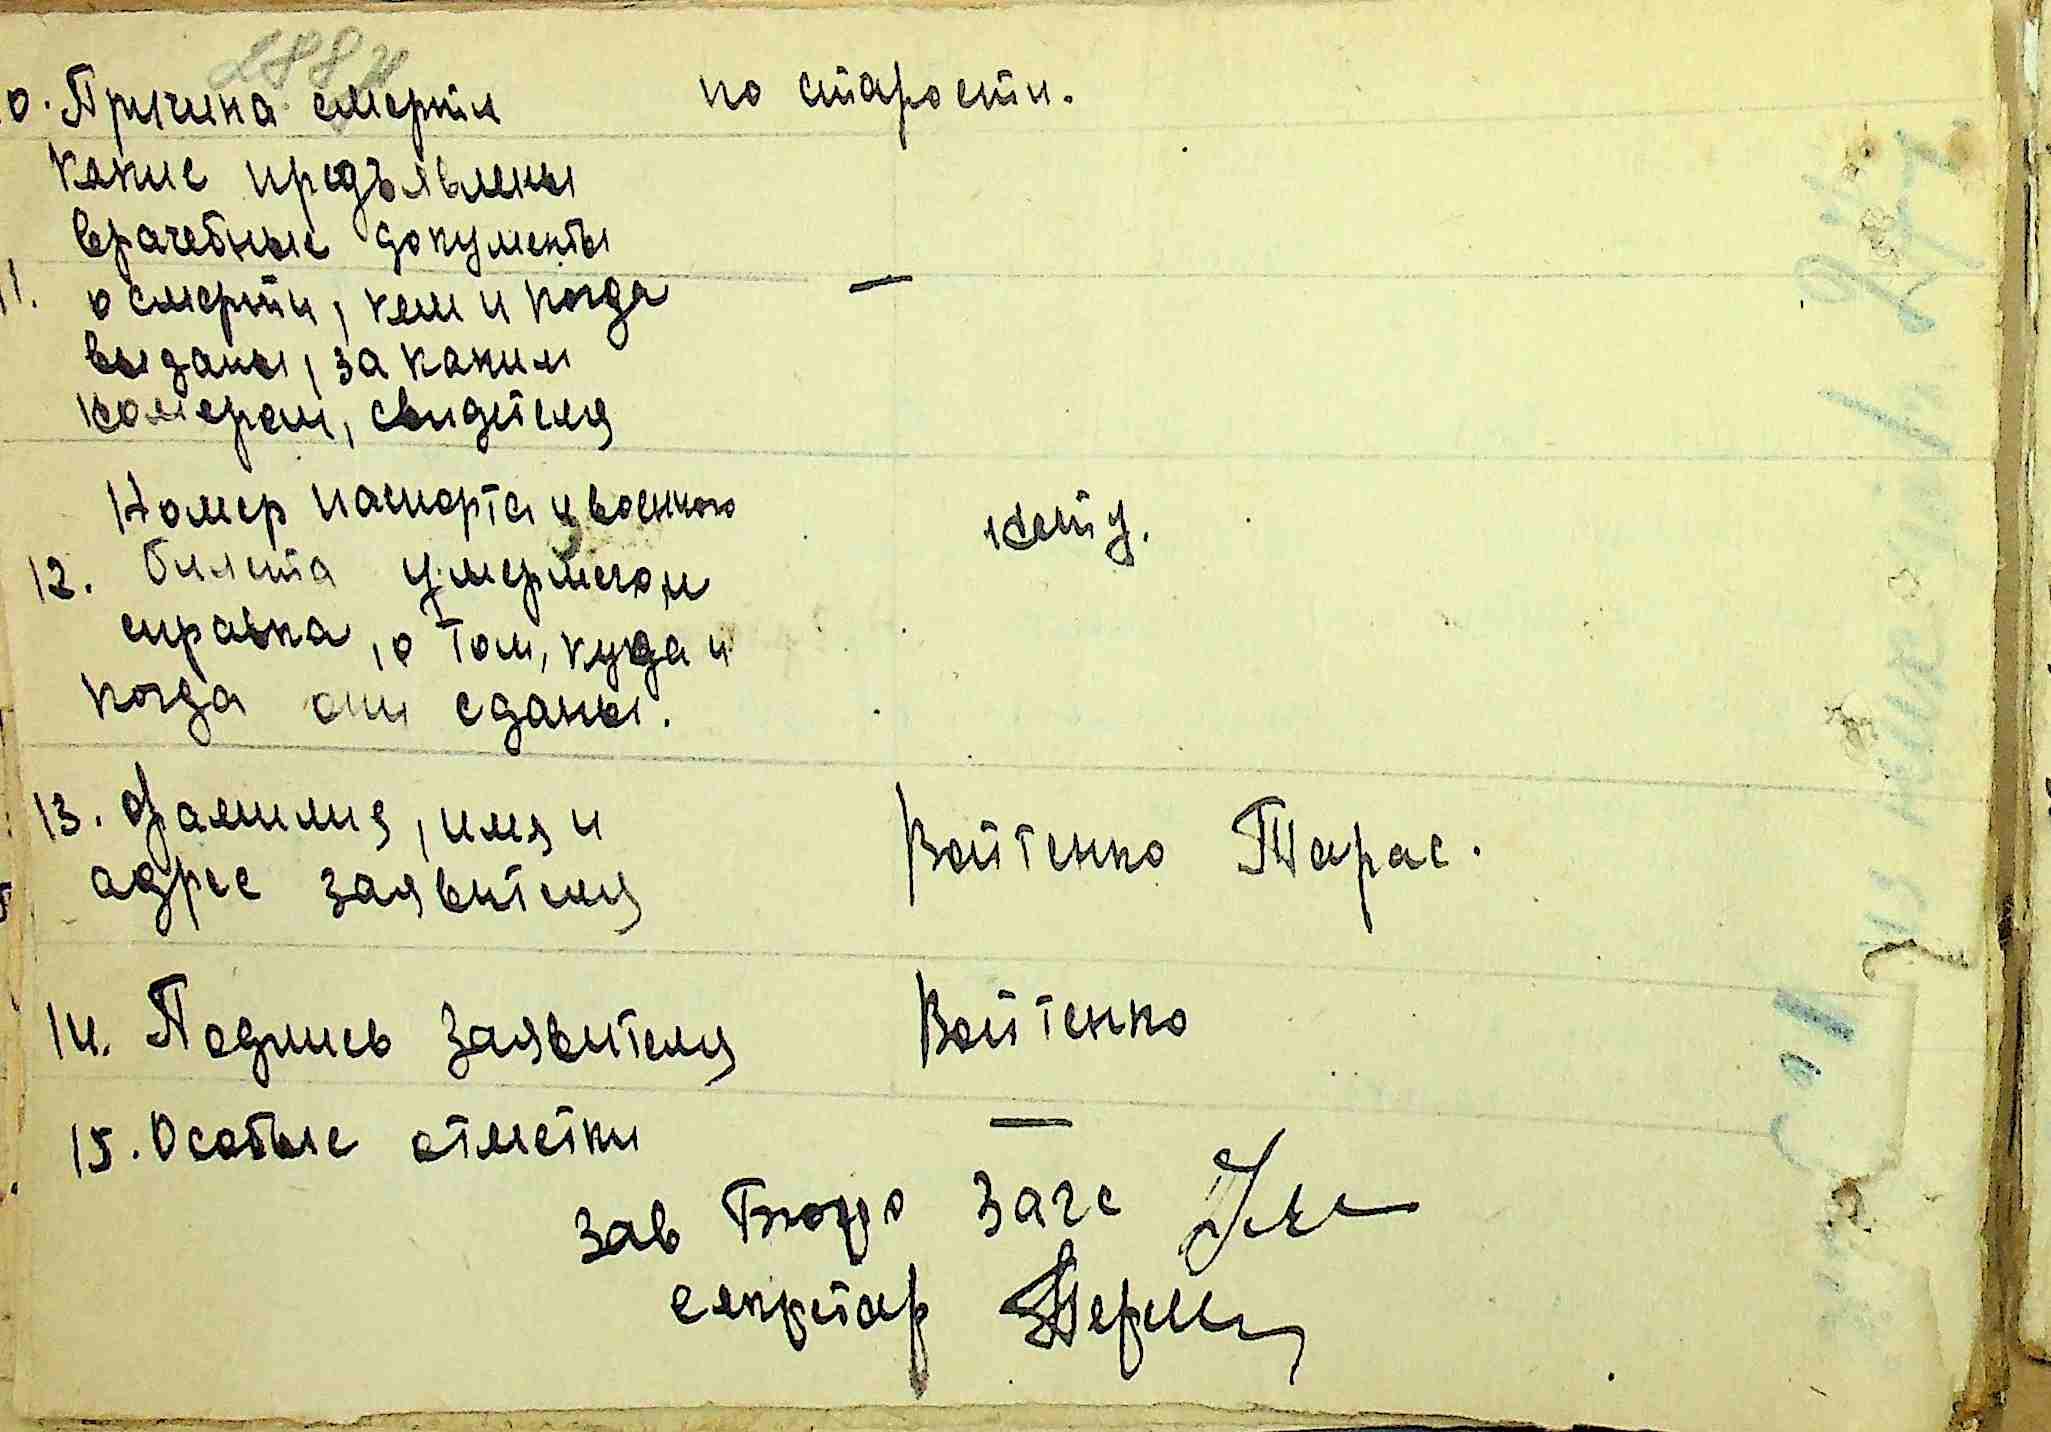 10. Причина смерти по старости.
какие предъявлены
врачебные документы
11. о смерти, кем и когда —
выданы, за каким
номером, свидетеля
Номер паспорта и военного
12. билета умершего и нету.
справка, о том, куда и
когда они сданы.
13. Фамилия, имя и
адрес заявителя Войтенко Тарас.
14. Подпись заявителя Войтенко
15. Особые отметки —
Зав Бюро Загс
секретар